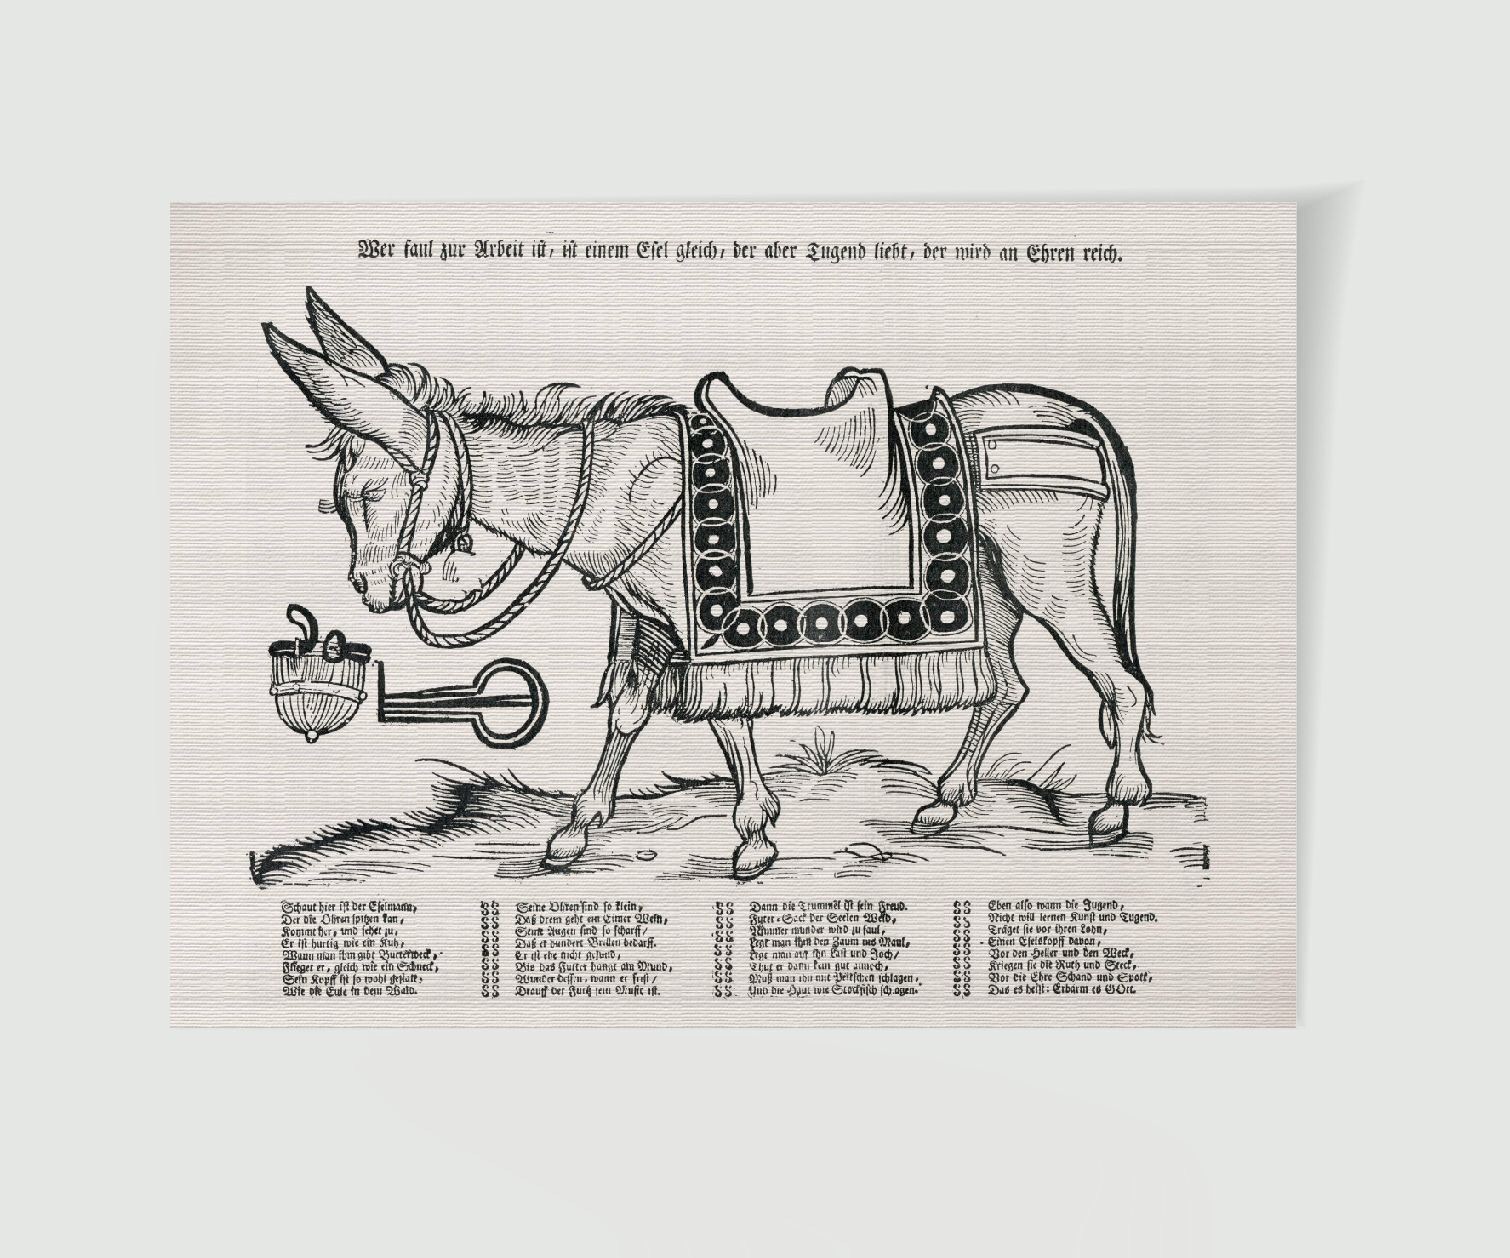 Wer faul zur Arbeit ist, ist einem Esel gleich, der aber Tugend liebt, der wird an Ehren reich.
Schaut hier ist der Eselmann,
Der die Ohren spitzen kan,
Kommt her, und sehet zu,
Er ist hurtig wie ein Kuh,
Wann man ihm gibt Butterweck,
Fleget er, gleich wie ein Schneck,
Sein Kopff ist so wohl gestalt,
Wie die Eule in dem Wald.
Seine Ohren sind so klein,
Daß drein geht ein Eimer Wein,
Seine Augen sind so scharff/
Daß er hundert Brillen bedarff.
Er ist ehe nicht gesund,
Bis das Futter hangt am Mund,
Wunder dessen, wann er frist/
Drauff der Furtz sein Music ist.
Dann die Trummel ist sein Freud.
Futer-Sack der Seelen Weid,
Nimmer munder wird zu faul,
Legt man ihm den Zaum ins Maul,
Lege man auf ihn Last und Joch/
Thut er dann kein gut annoch,
Muß man ihn mit Peitschen schlagen,
Und die Haut wie Stockfisch schlagen.
Eben also wann die Jugend,
Nicht will lernen Kunst und Tugend.
Träget sie vor ihren Lohn,
Einen Eselskopff davon,
Vor den Heller und den Weck,
Kriegen sie die Ruth und Steck,
Vor die Ehre Schand und Spott,
Das es heist: Erbarm es GOtt.